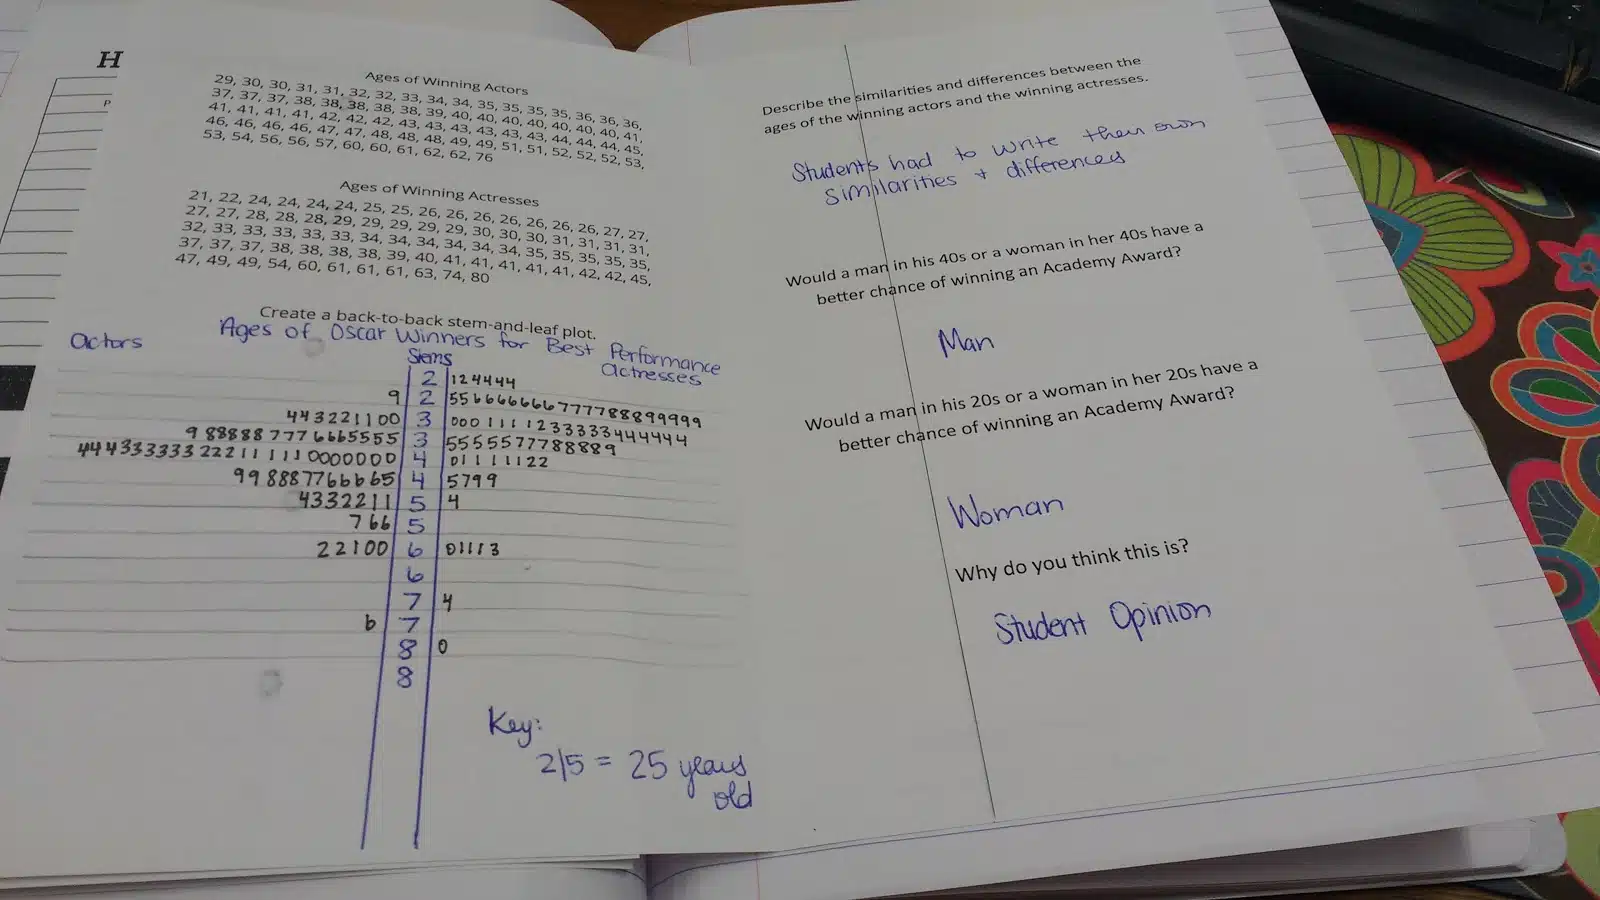 H
P
Ages of Winning Actors
29, 30, 30, 31, 31, 32, 32, 33, 34, 34, 35, 35, 35, 35, 35, 36, 36, 36,
37, 37, 37, 38, 38, 38, 38, 38, 39, 40, 40, 40, 40, 40, 40, 40, 41,
41, 41, 41, 41, 42, 42, 42, 43, 43, 43, 43, 43, 43, 44, 44, 44, 45,
46, 46, 46, 46, 47, 47, 48, 48, 48, 49, 49, 51, 51, 52, 52, 52, 53,
53, 54, 56, 56, 57, 60, 60, 61, 62, 62, 76
Ages of Winning Actresses
21, 22, 24, 24, 24, 24, 25, 25, 26, 26, 26, 26, 26, 26, 26, 27, 27,
27, 27, 28, 28, 28, 29, 29, 29, 29, 29, 30, 30, 30, 31, 31, 31, 31,
32, 33, 33, 33, 33, 33, 34, 34, 34, 34, 34, 34, 35, 35, 35, 35, 35,
37, 37, 37, 38, 38, 38, 38, 39, 40, 41, 41, 41, 41, 41, 42, 42, 45,
47, 49, 49, 54, 60, 61, 61, 61, 63, 74, 80
Create a back-to-back stem-and-leaf plot.
Ages of Oscar Winners for Best Performance
Actors Stems Actresses
2 124444
9 2 55666666677778889 9999
443221100 3 000111123333344444 4
9 88888 777 6665555 5 3 5555577788889
444333333 222111110000000 4 01111122
99888776666 5 4 5799
4332211 5 4
766 5
22100 6 01113
6
7 4
6 7
8 0
8
Key:
2|5 = 25 years
old
Describe the similarities and differences between the
ages of the winning actors and the winning actresses.
Students had to write their own
similarities + differences
Would a man in his 40s or a woman in her 40s have a
better chance of winning an Academy Award?
Man
Would a man in his 20s or a woman in her 20s have a
better chance of winning an Academy Award?
Woman
Why do you think this is?
Student Opinion